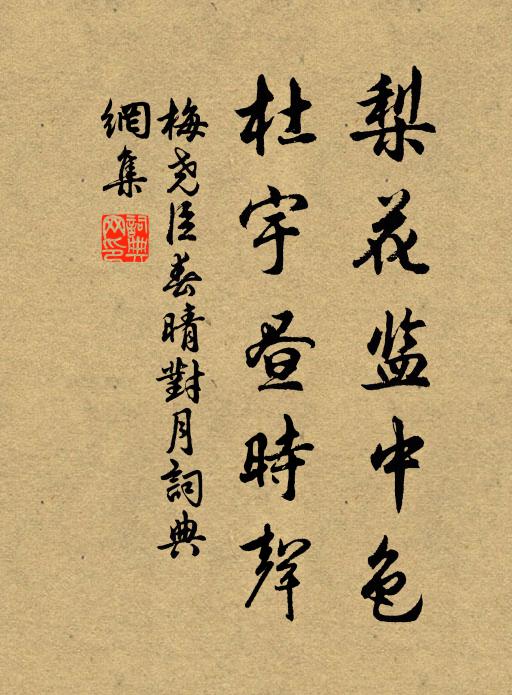 梨花监中色
杜宇昼時聲
梅尧臣春晴對月詞典
網集
詞典网印